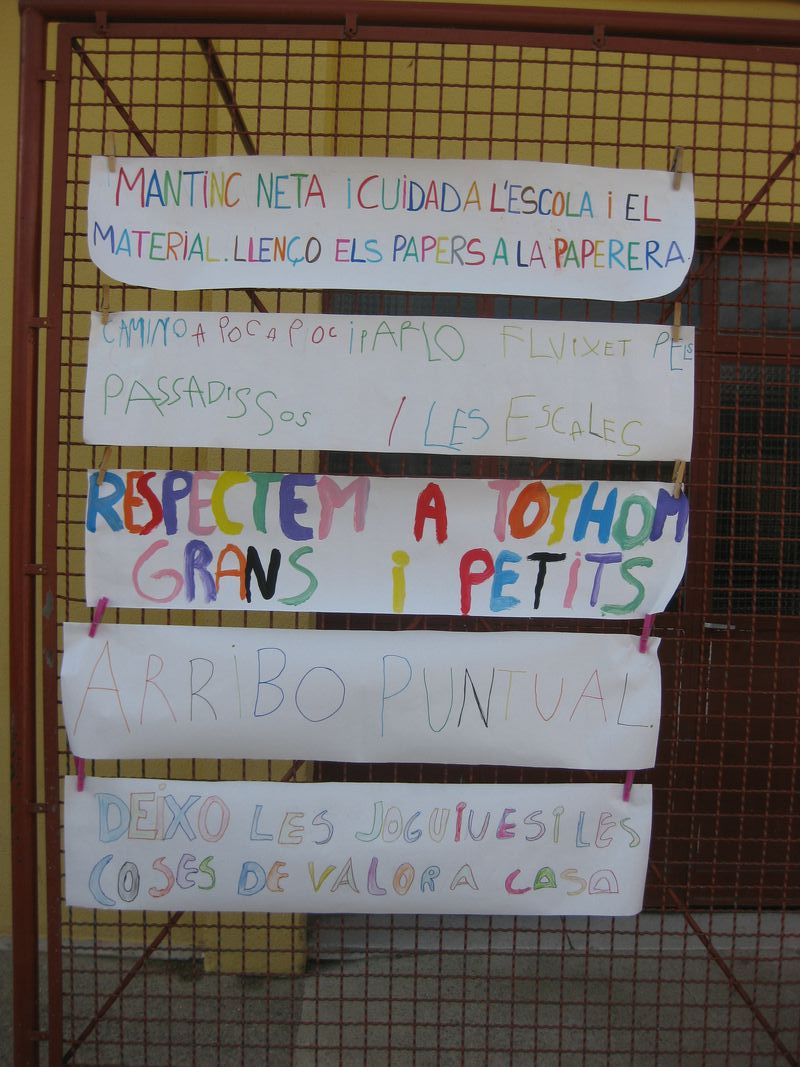 MANTiNC NETA i CUiDADA L'ESCOLA i EL
MATERiAL. LLENÇO ELS PAPERS A LA PAPERERA.
CAMINO A POC A POC i PARLO FLUiXET PELS
PASSADiSSOS I LES ESCALES
RESPECTEM A TOTHOM
GRANS i PETiTS
ARRiBO PUNTUAL.
DEiXO LES JOGUiUES i LES
COSES DE VALOR A CASA